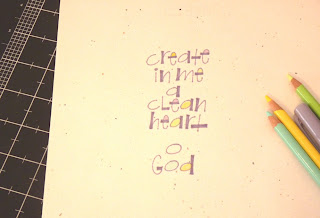 create
in me
a
clean
heart
o
God